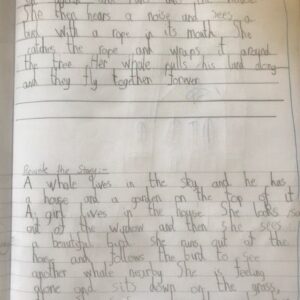 again and
She then hears a noise and sees a
bird with a rope in its mouth. She
catches the rope and wraps it around
the tree. Her whale pulls his land along
and they fly together forever.
Rewrite the Story:-
A whale lives in the sky and he has
a house and a garden on the top of it.
A girl lives in the house She looks
out of the window and then she sees
a beautiful bird she runs out of the
and follows the bird to see
another whale nearby She is feeling
alone and sits down on the grass,